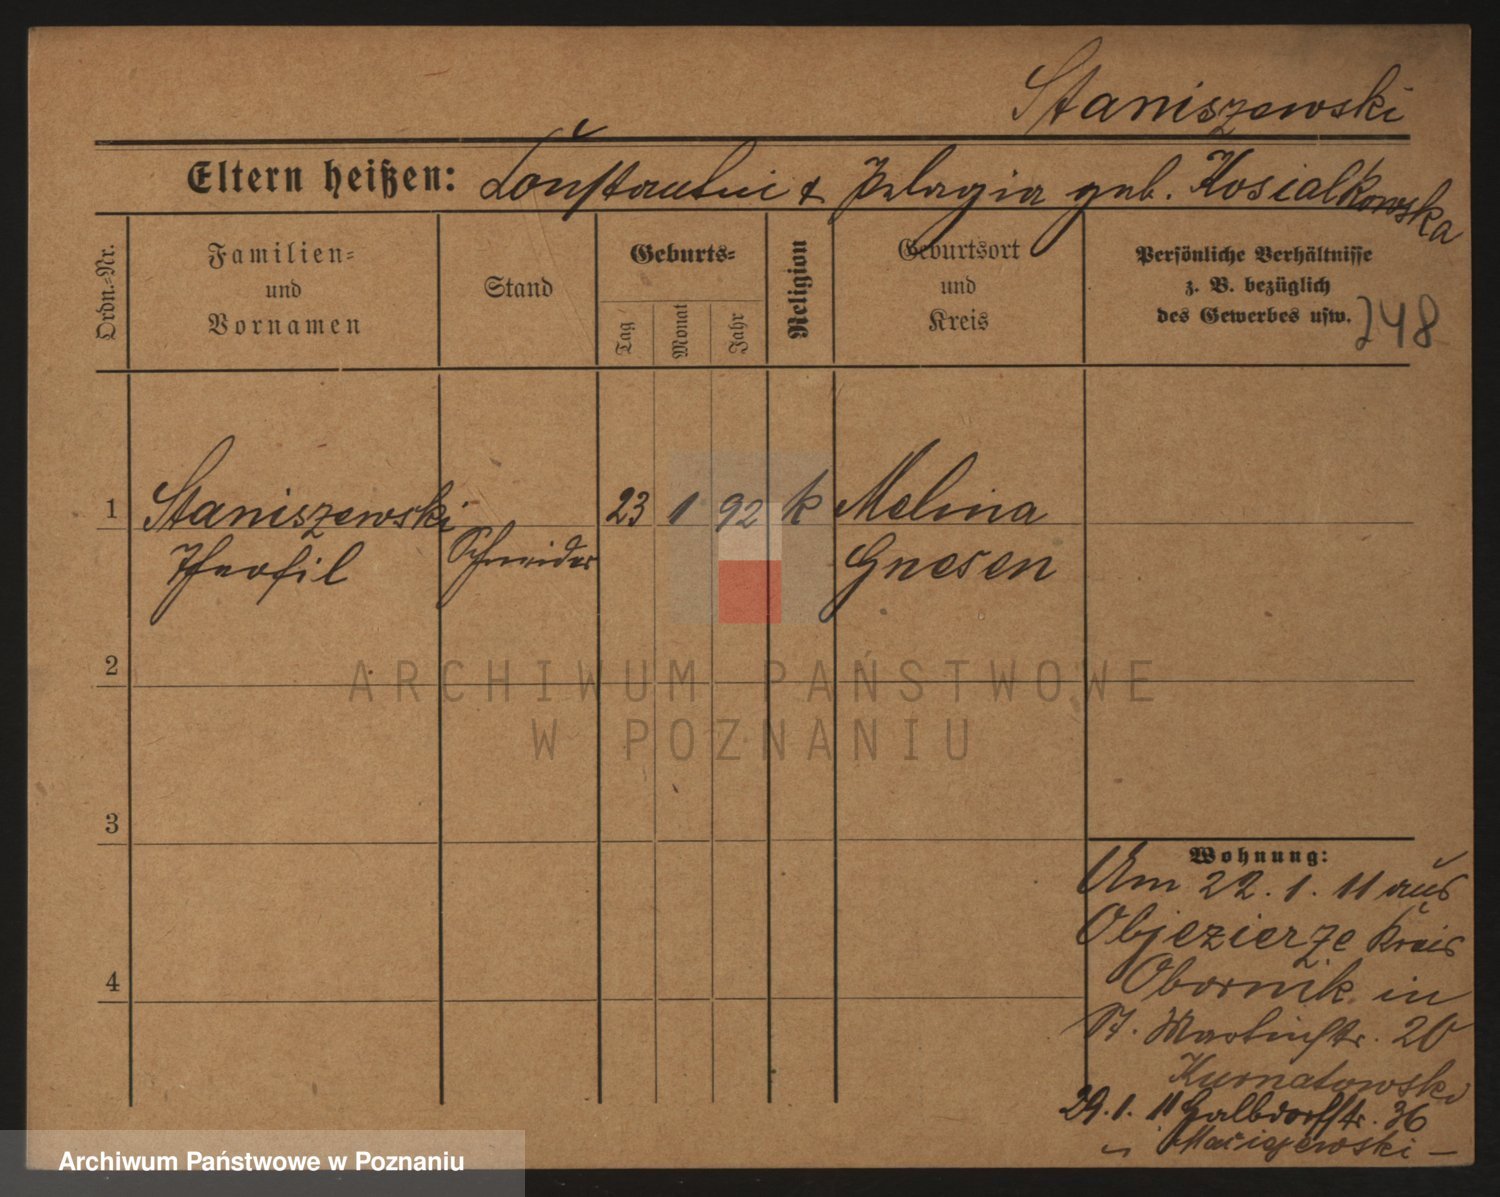 Staniszewski
Eltern heißen: Konstantin & Pelagia geb. Kosialkowska
Ordn.-Nr.
Familien-
und
Vornamen
Stand
Geburts-
Tag
Monat
Jahr
Religion
Geburtsort
und
Kreis
Persönliche Verhältnisse
z. B. bezüglich
des Gewerbes usw.
248
1
Staniszewski
Theofil
Schneider
23 1 92 k
Melina
Gnesen
2
3
4
Wohnung:
Am 22. 1. 11 aus
Objezierze Kreis
Obornik in
St. Martinstr. 20
Kurnatowski
29. 1. 11 Halbdorfstr. 36
Maciejewski
ARCHIWUM PAŃSTWOWE
W POZNANIU
Archiwum Państwowe w Poznaniu